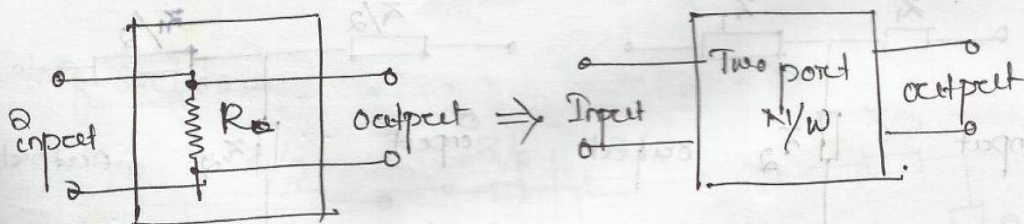 2
input
R
output
⇒
Input
Two port
N/W
output